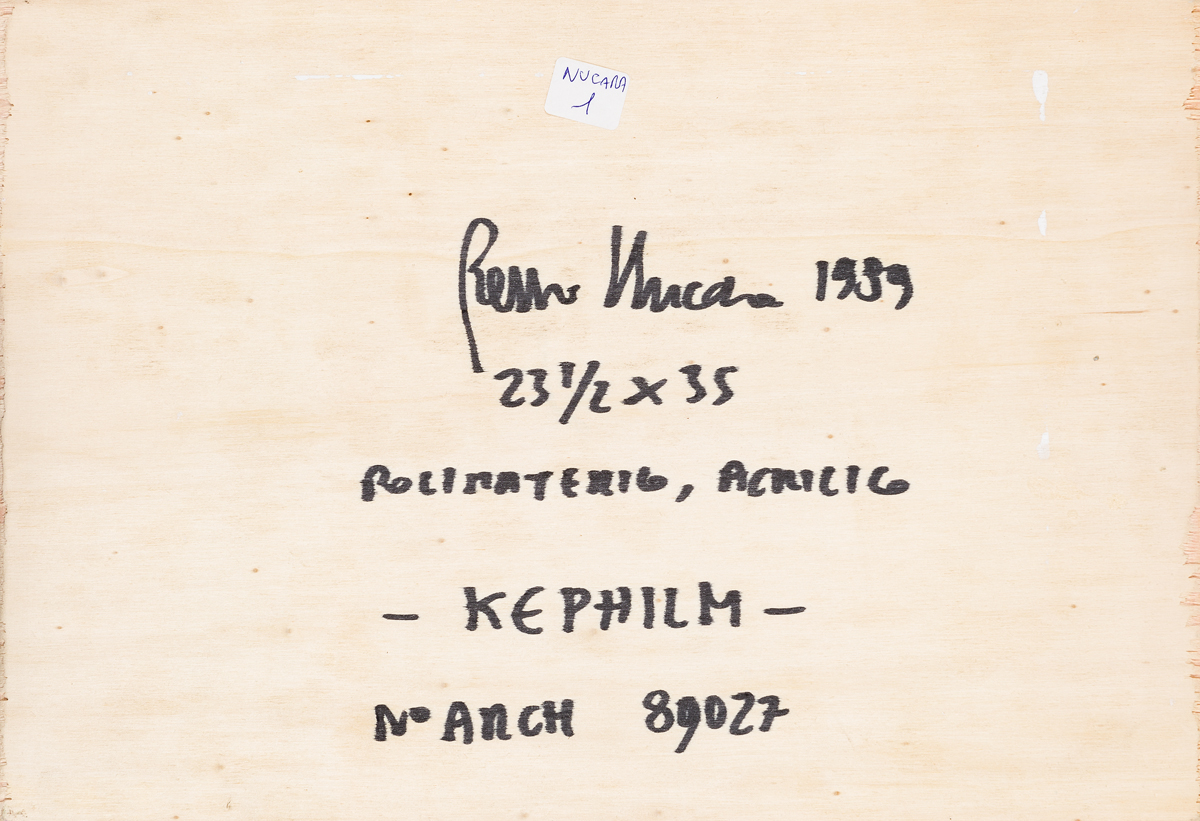 NUCARA
1
Renzo Nucara 1989
23 1/2 x 35
POLIMATERICO, ACRILICO
- KEPHILM -
N° ARCH 89027